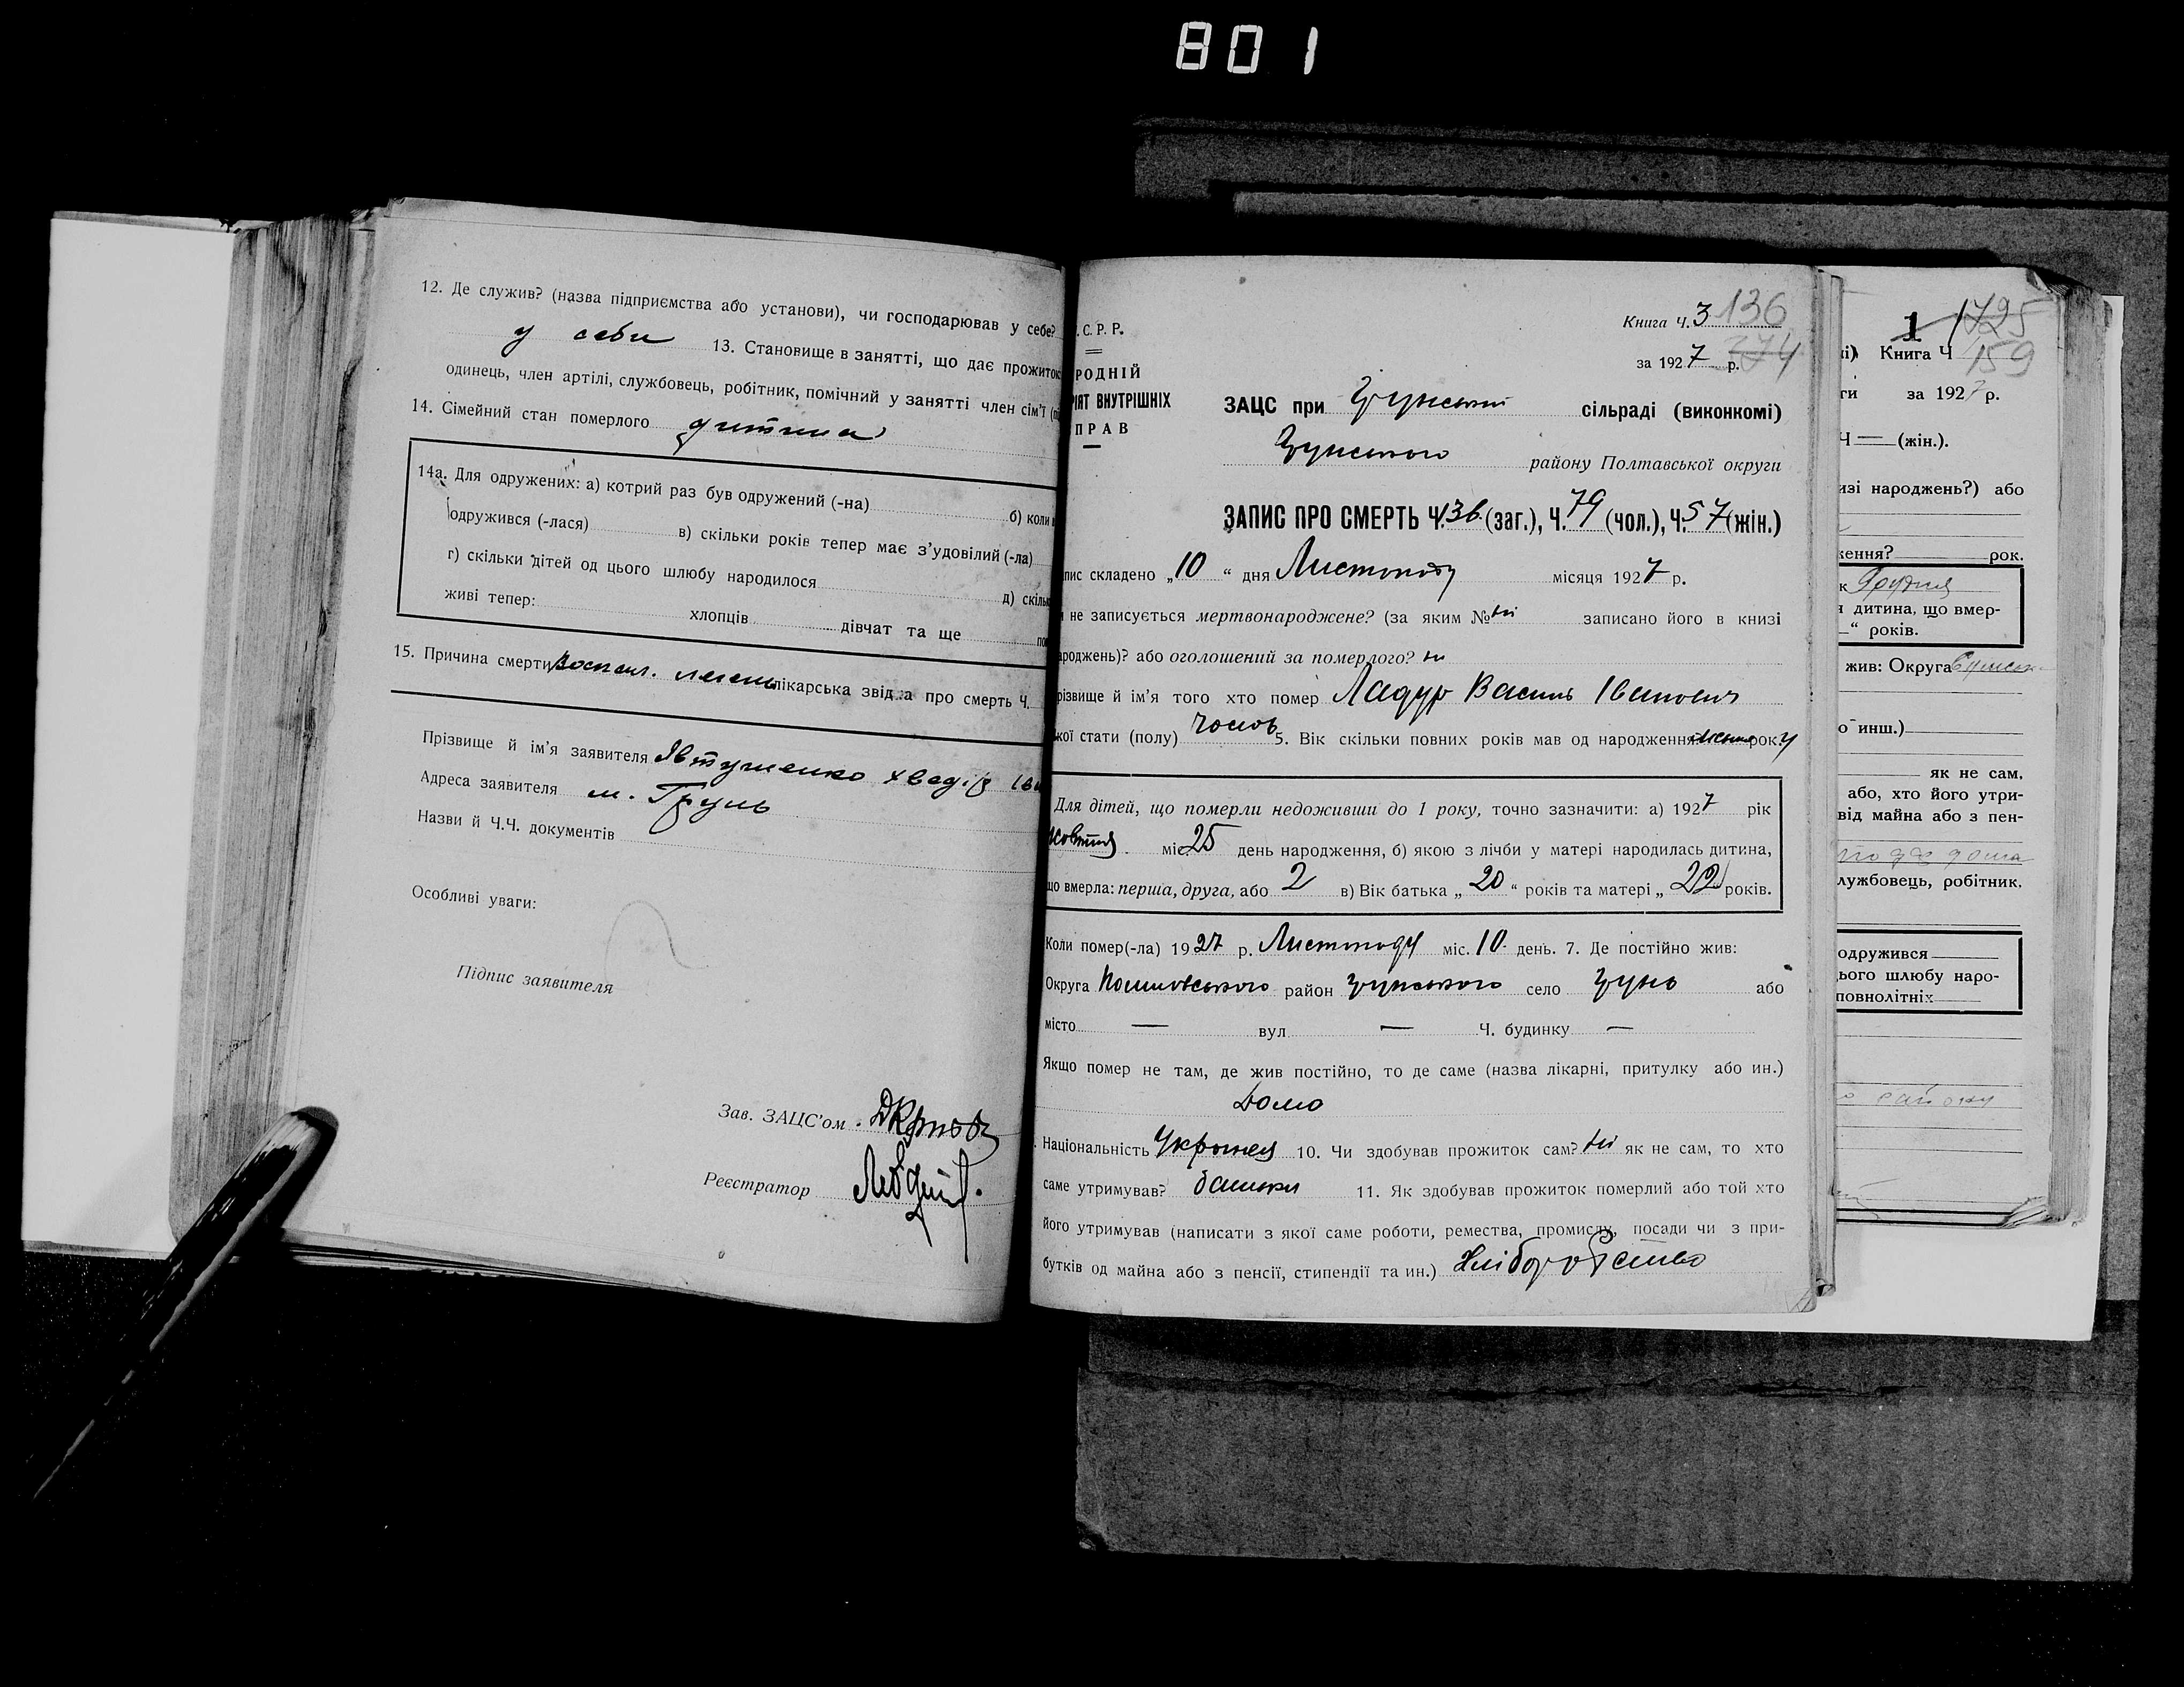 801
12. Де служив? (назва підприємства або установи), чи господарював у себе?
у себи 13. Становище в занятті, що дає прожиток
одинець, член артілі, службовець, робітник, помічний у занятті член сім'ї
14. Сімейний стан померлого дитина
14а. Для одружених: а) котрий раз був одружений (-на) б) коли
одружився (-лася) в) скільки років тепер має з'удовілий (-ла)
г) скільки дітей од цього шлюбу народилося д) скільк
живі тепер: хлопців дівчат та ще
15. Причина смерти воспал. легень лікарська звідка про смерть Ч.
Прізвище й ім'я заявителя Явтушенко Хведір Іван
Адреса заявителя м. Грунь
Назви й Ч.Ч. документів
Особливі уваги:
Підпис заявителя
Зав. ЗАЦС'ом
Реєстратор
.С.Р.Р.
РОДНІЙ
РІЯТ ВНУТРІШНІХ
ПРАВ
Книга Ч. 3 136
за 1927 р. 274
ЗАЦС при Грунській сільраді (виконкомі)
Грунського району Полтавської округи
ЗАПИС ПРО СМЕРТЬ Ч. 136 (заг.), Ч. 79 (чол.), Ч. 57 (жін.)
пис складено „10“ дня Листопаду місяця 1927 р.
и не записується мертвонароджене? (за яким № ні записано його в книзі
ароджень)? або оголошений за померлого? ні
різвище й ім'я того хто помер Ладур Василь Іванович
кої стати (полу) чолов 5. Вік скільки повних років мав од народження року
Для дітей, що померли недоживши до 1 року, точно зазначити: а) 1927 рік
жовтня міс. 25 день народження, б) якою з лічби у матері народилась дитина,
що вмерла: перша, друга, або 2 в) Вік батька „20“ років та матері „22“ років.
Коли помер(-ла) 1927 р. Листопаду міс. 10 день. 7. Де постійно жив:
Округа Полтавського район Грунського село Грунь або
місто — вул — Ч. будинку —
Якщо помер не там, де жив постійно, то де саме (назва лікарні, притулку або ин.)
Дома
Національність Україн. 10. Чи здобував прожиток сам? ні як не сам, то хто
саме утримував? батьки 11. Як здобував прожиток померлий або той хто
його утримував (написати з якої саме роботи, ремества, промислу, посади чи з при-
бутків од майна або з пенсії, стипендії та ин.) Хліборобство
1 1725
і) Книга Ч 159
ги за 1927 р.
Ч — (жін.).
изі народжень?) або
ження? рок.
к Грудня
я дитина, що вмер-
—“ років.
жив: Округа Сумськ.
о инш.)
як не сам,
або, хто його утри-
від майна або з пен-
лужбовець, робітник,
одружився
ього шлюбу наро-
повнолітніх
району